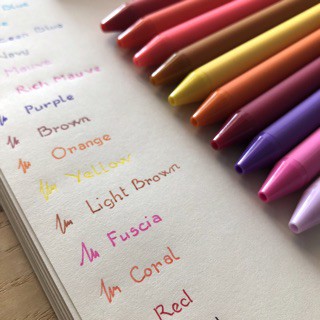 Blue
Mauve
Rich Mauve
Purple
Brown
Orange
Yellow
Light Brown
Fuscia
Coral
Red